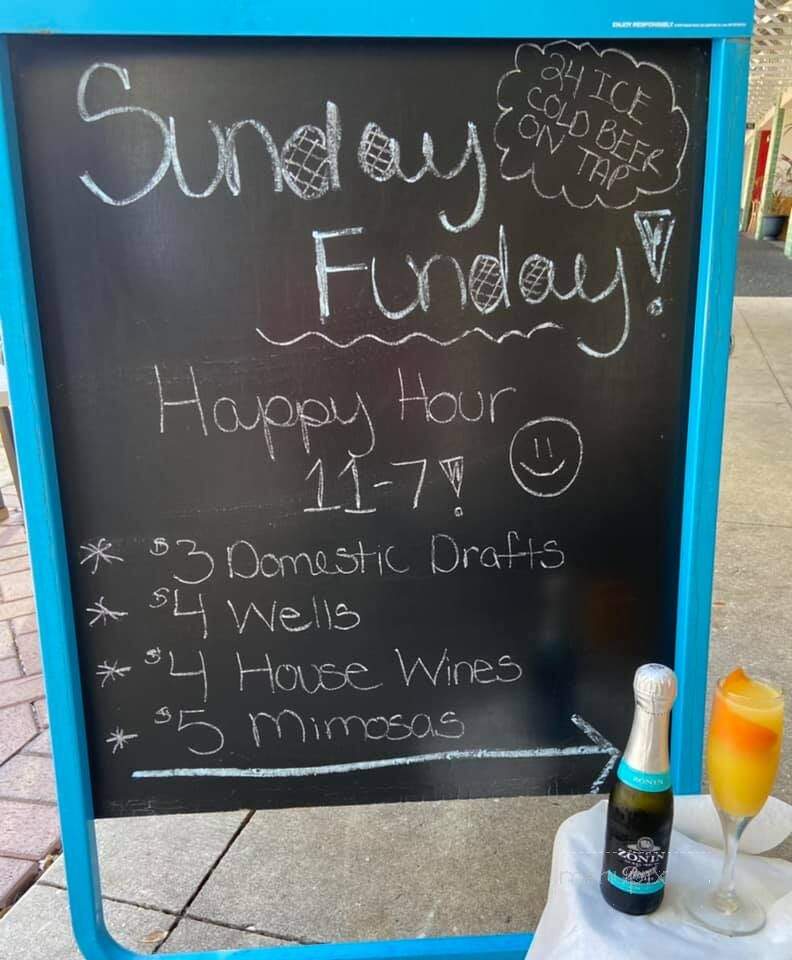 ENJOY RESPONSIBLY
24 ICE
COLD BEER
ON TAP
Sunday
Funday!
Happy Hour
11-7!
* $3 Domestic Drafts
* $4 Wells
* $4 House Wines
* $5 Mimosas
ZONIN
ZONIN